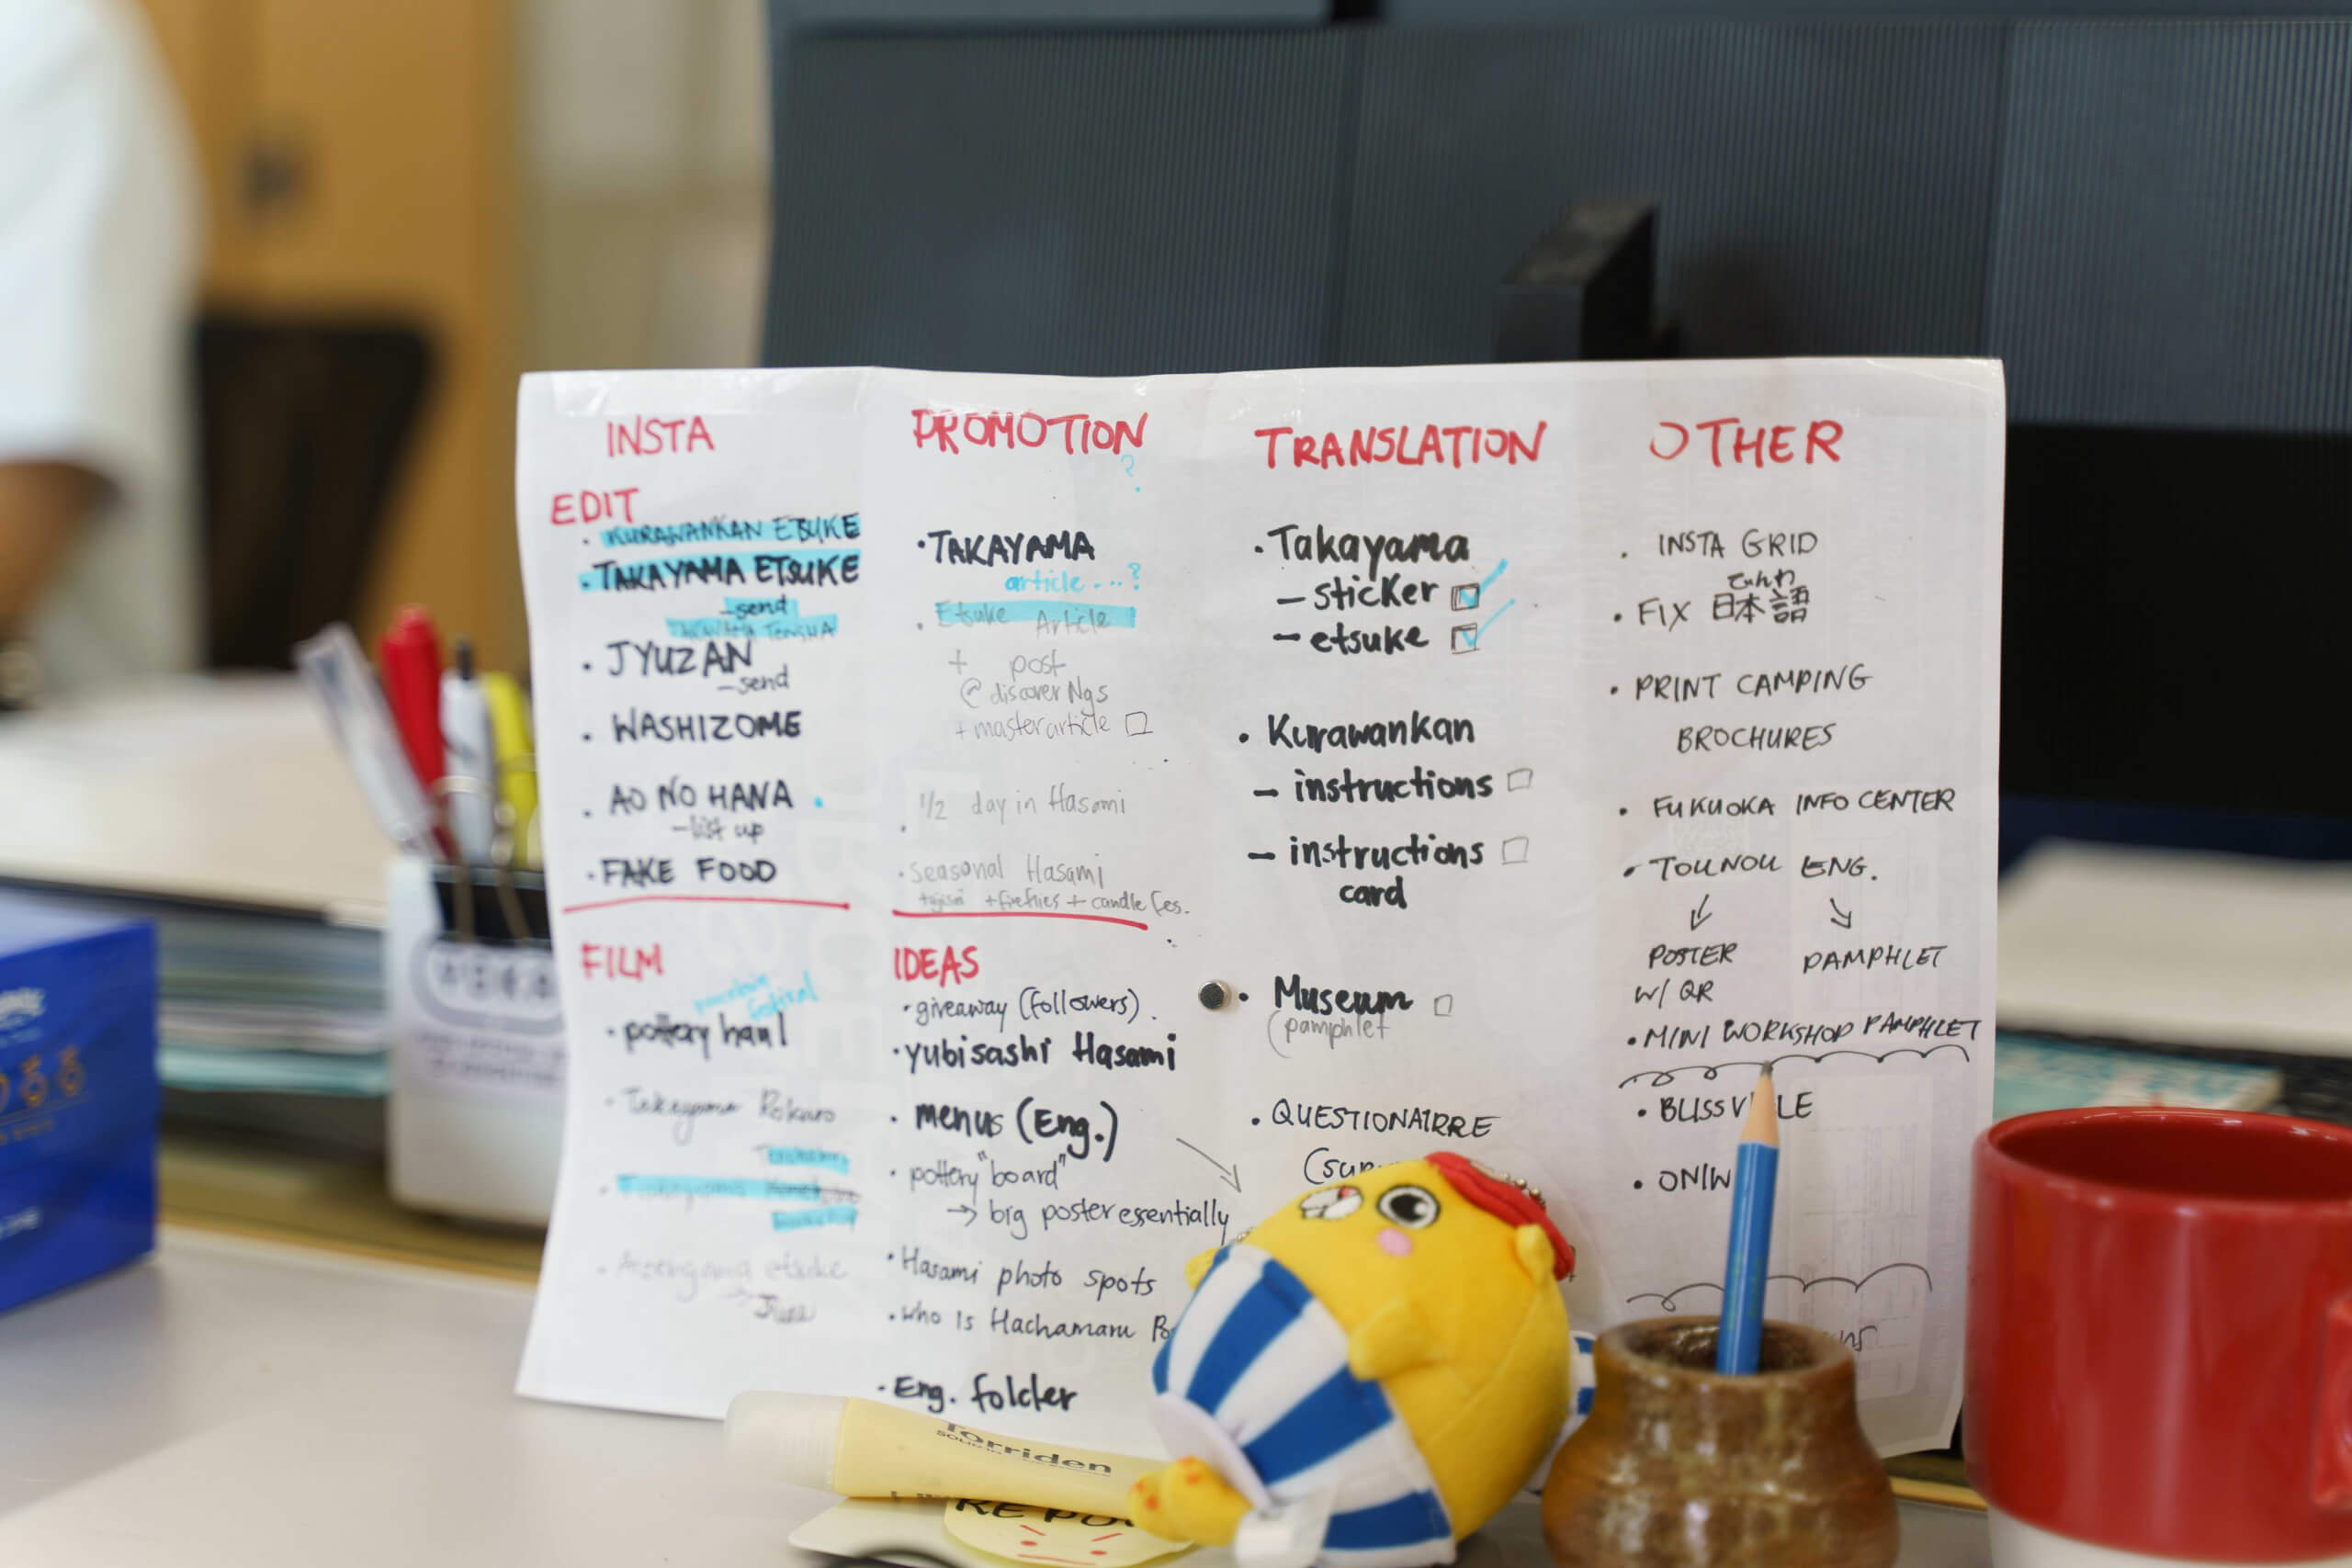 INSTA
EDIT
· KURAWANKAN ETSUKE
· TAKAYAMA ETSUKE
- send
TAKAYAMA TENSHA
· JYUZAN
- send
· WASHIZOME
· AO NO HANA
- list up
· FAKE FOOD
FILM
festival
· pottery haul
· Takayama Rokuro
· Takayama
etsuke
→ June
PROMOTION
?
· TAKAYAMA
article...?
· Etsuke Article
+ post
@discoverNgs
+ master article
· 1/2 day in Hasami
· Seasonal Hasami
+ fireflies + candle fes.
IDEAS
· giveaway (followers).
· yubisashi Hasami
· menus (Eng.)
· pottery "board"
→ big poster essentially
· Hasami photo spots
· who is Hachamaru
· Eng. folder
TRANSLATION
· Takayama
- sticker
- etsuke
· Kurawankan
- instructions
- instructions
card
· Museum
(pamphlet
· QUESTIONAIRRE
OTHER
· INSTA GRID
· FIX 日本語
· PRINT CAMPING
BROCHURES
· FUKUOKA INFO CENTER
· TOUNOU ENG.
↙ ↘
POSTER PAMPHLET
W/ QR
· MINI WORKSHOP PAMPHLET
Torriden